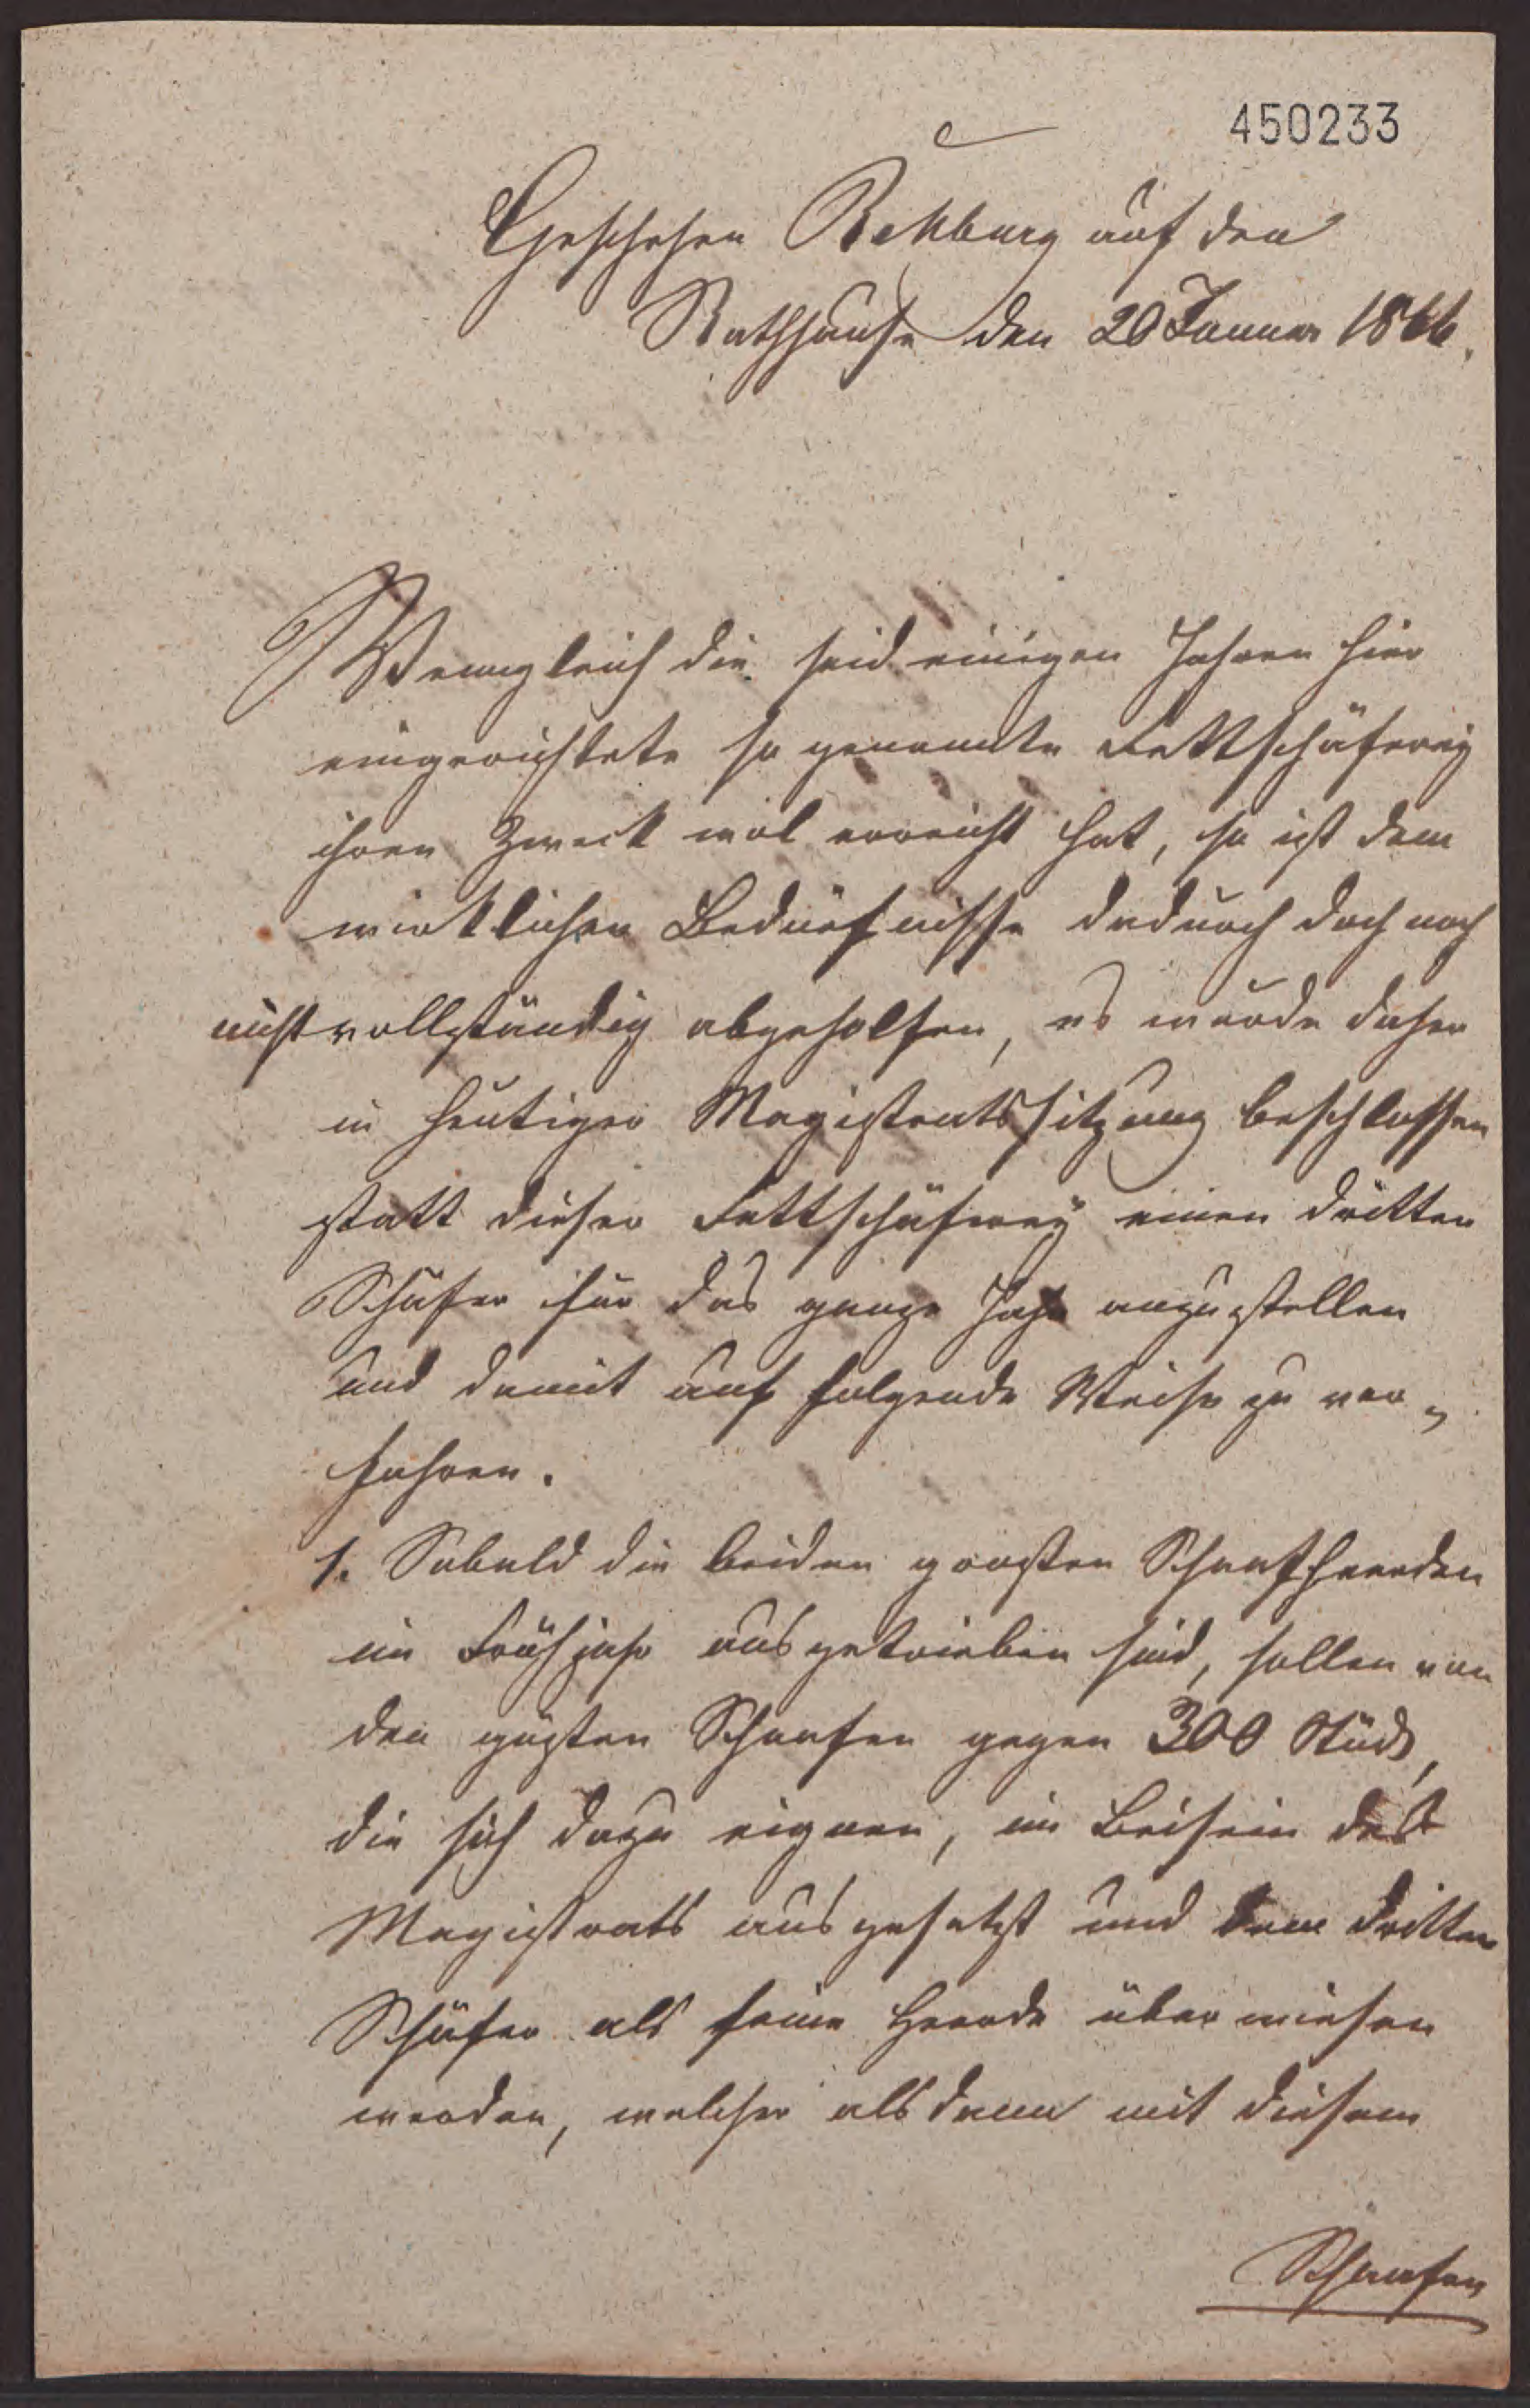 450233
Geschehen Rehburg auf den
Rathhause den 20 Januar 1866.
Wenngleich die seid einigen Jahren hier
eingerichtete so genannte Fettschäferey
ihren Zweck wol erreicht hat, so ist dem
wirklichen Bedürfnisse dadurch doch noch
nicht vollständig abgeholfen, es wurde daher
in heutiger Magistratssitzung beschlossen
statt dieser Fettschäferey einen dritten
Schäfer für das ganze Jahr anzustellen
und damit auf folgende Weise zu ver-
fahren.
1. Sobald die beiden grosten Schaafheerden
im Frühjahr ausgetrieben sind, sollen von
den güsten Schaafen gegen 300 Stück,
die sich dazu eignen, im Beisein des
Magistrats ausgesetzt und dem dritten
Schäfer als seine Heerde überwiesen
werden, welcher alsdann mit diesem
Schaafen